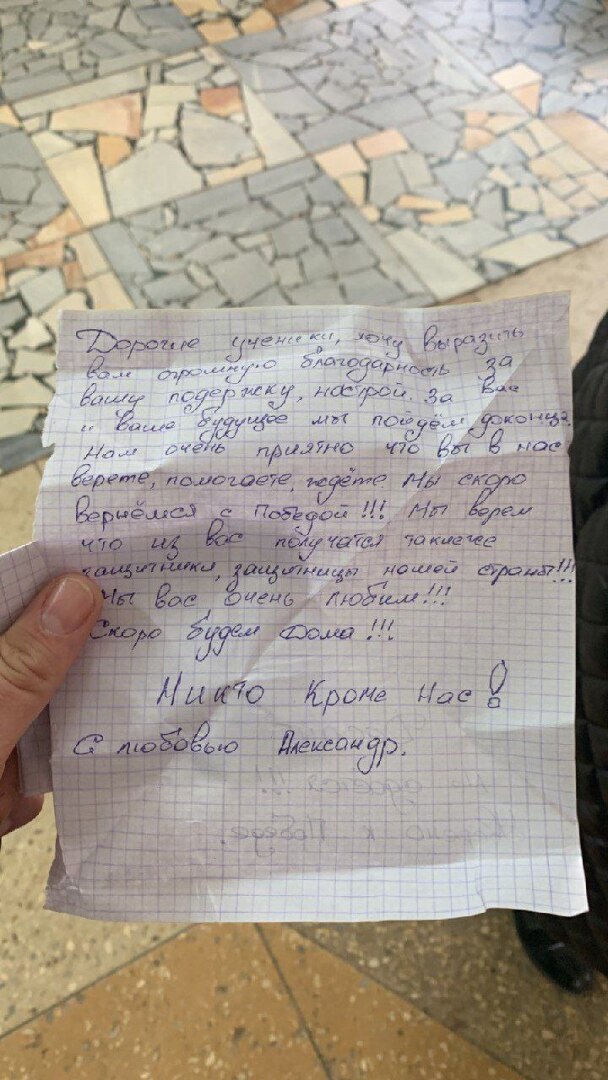 Дорогие ученики, хочу выразить
вам огромную благодарность за
вашу подержку, настрой. За вас
и ваше будущее мы пойдём доконца.
Нам очень приятно что вы в нас
верете, помогаете, ждёте. Мы скоро
вернёмся с Победой!!! Мы верем
что из вас получатся такиеже
защитники, защитницы нашей страны!!!
Мы вас очень любим!!!
Скоро будем Дома!!!
Никто Кроме Нас!
С любовью Александр.